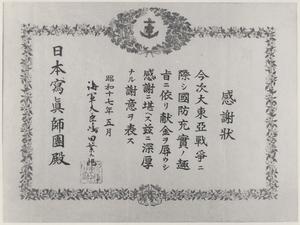 感謝狀
今次大東亞戰爭ニ
際シ國防充實ノ趣
旨ニ依リ献金ヲ辱ウシ
感謝ニ堪ヘス茲ニ深厚
ナル謝意ヲ表ス
昭和十七年五月
海軍大臣嶋田繁太郎
日本寫眞師團殿